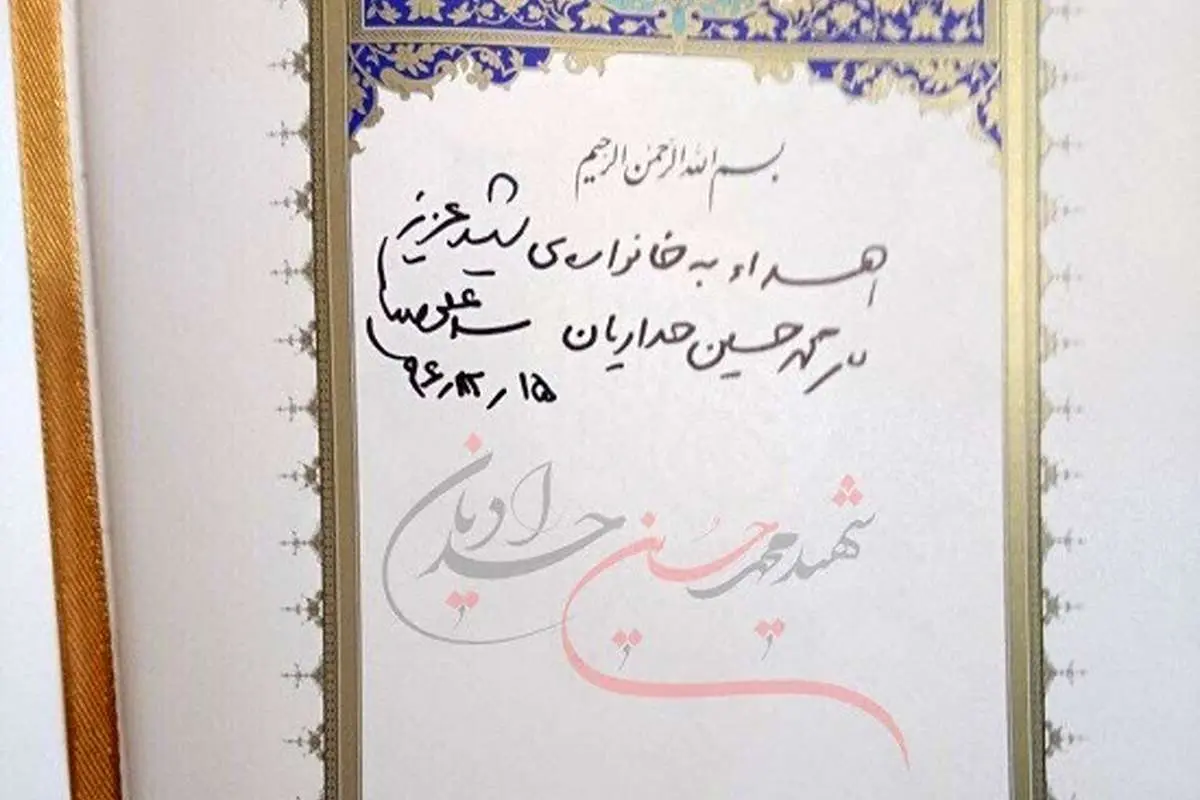 بسم الله الرحمن الرحیم
اهداء به خانواده‌ی شهید عزیز
محمدحسین حدادیان
سیدعلی خامنه‌ای
۹۶/۱۲/۱۵
شهید محمدحسین حدادیان